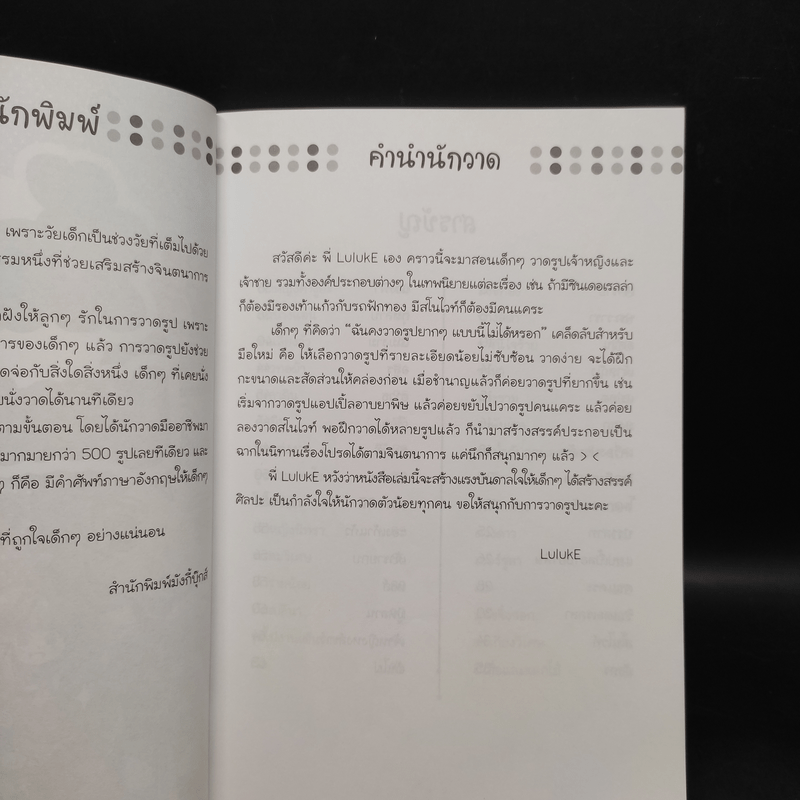 นักพิมพ์
เพราะวัยเด็กเป็นช่วงวัยที่เต็มไปด้วย
รรมหนึ่งที่ช่วยเสริมสร้างจินตนาการ
ฝังให้ลูกๆ รักในการวาดรูป เพราะ
ารของเด็กๆ แล้ว การวาดรูปยังช่วย
ดจ่อกับสิ่งใดสิ่งหนึ่ง เด็กๆ ที่เคยนั่ง
นั่งวาดได้นานทีเดียว
ตามขั้นตอน โดยได้นักวาดมืออาชีพมา
มากมายกว่า 500 รูปเลยทีเดียว และ
ๆ ก็คือ มีคำศัพท์ภาษาอังกฤษให้เด็กๆ
ที่ถูกใจเด็กๆ อย่างแน่นอน
สำนักพิมพ์มังกี้บุ๊กส์
คำนำนักวาด
สวัสดีค่ะ พี่ LulukE เอง คราวนี้จะมาสอนเด็กๆ วาดรูปเจ้าหญิงและ
เจ้าชาย รวมทั้งองค์ประกอบต่างๆ ในเทพนิยายแต่ละเรื่อง เช่น ถ้ามีซินเดอเรลล่า
ก็ต้องมีรองเท้าแก้วกับรถฟักทอง มีสโนไวท์ก็ต้องมีคนแคระ
เด็กๆ ที่คิดว่า "ฉันคงวาดรูปยากๆ แบบนี้ไม่ได้หรอก" เคล็ดลับสำหรับ
มือใหม่ คือ ให้เลือกวาดรูปที่รายละเอียดน้อยไม่ซับซ้อน วาดง่าย จะได้ฝึก
กะขนาดและสัดส่วนให้คล่องก่อน เมื่อชำนาญแล้วก็ค่อยวาดรูปที่ยากขึ้น เช่น
เริ่มจากวาดรูปแอปเปิ้ลอาบยาพิษ แล้วค่อยขยับไปวาดรูปคนแคระ แล้วค่อย
ลองวาดสโนไวท์ พอฝึกวาดได้หลายรูปแล้ว ก็นำมาสร้างสรรค์ประกอบเป็น
ฉากในนิทานเรื่องโปรดได้ตามจินตนาการ แค่นึกก็สนุกมากๆ แล้ว > <
พี่ LulukE หวังว่าหนังสือเล่มนี้จะสร้างแรงบันดาลใจให้เด็กๆ ได้สร้างสรรค์
ศิลปะ เป็นกำลังใจให้นักวาดตัวน้อยทุกคน ขอให้สนุกกับการวาดรูปนะคะ
LulukE